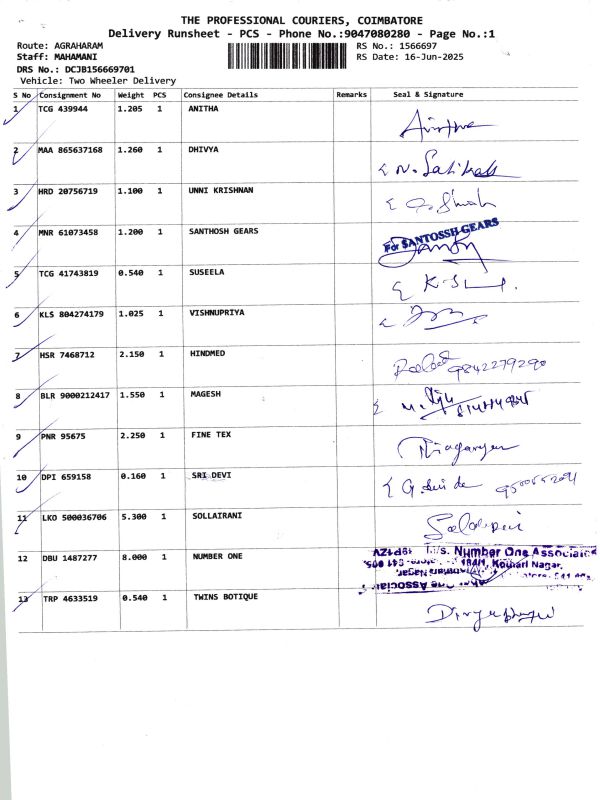 THE PROFESSIONAL COURIERS, COIMBATORE
Delivery Runsheet - PCS - Phone No.:9047080280 - Page No.:1
Route: AGRAHARAM RS No.: 1566697
Staff: MAHAMANI RS Date: 16-Jun-2025
DRS No.: DCJB156669701
Vehicle: Two Wheeler Delivery
S No Consignment No Weight PCS Consignee Details Remarks Seal & Signature
1 TCG 439944 1.205 1 ANITHA
2 MAA 865637168 1.260 1 DHIVYA
3 HRD 20756719 1.100 1 UNNI KRISHNAN
4 MNR 61073458 1.200 1 SANTHOSH GEARS For SANTOSSH GEARS
5 TCG 41743819 0.540 1 SUSEELA
6 KLS 804274179 1.025 1 VISHNUPRIYA
7 HSR 7468712 2.150 1 HINDMED 9842279290
8 BLR 9000212417 1.550 1 MAGESH
9 PNR 95675 2.250 1 FINE TEX
10 DPI 659158 0.160 1 SRI DEVI
11 LKO 500036706 5.300 1 SOLLAIRANI
12 DBU 1487277 8.000 1 NUMBER ONE Number One Associate
Kothari Nagar,
13 TRP 4633519 0.540 1 TWINS BOTIQUE